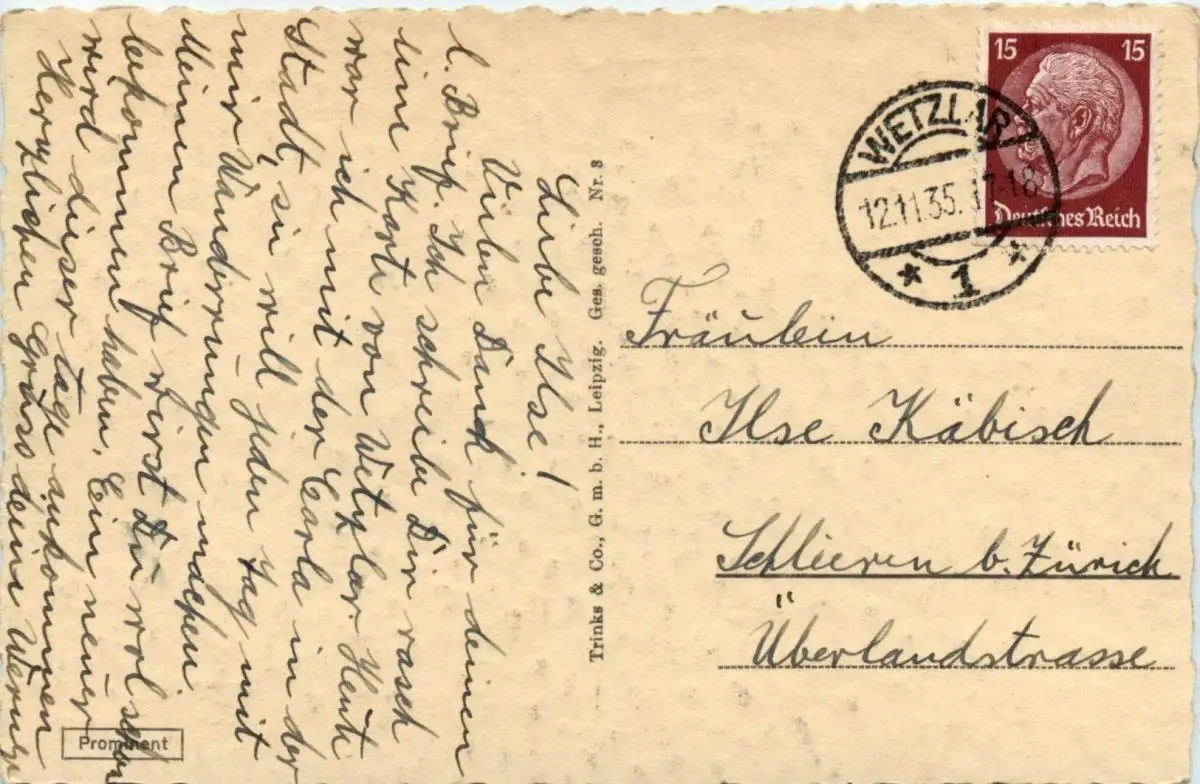 Liebe Ilse!
Vielen Dank für deinen
l. Brief. Ich schreibe Dir rasch
eine Karte von Wetzlar. Heute
war ich mit der Carla in der
Stadt, sie will jeden Tag mit
mir Wanderrungen machen.
Meinen Brief wirst Du wol schon
bekommen haben. Ein neuer
wird dieser tage ankommen
Herzlichen Gruss dein Werner
Prominent
Trinks & Co., G. m. b. H., Leipzig. Ges. gesch. Nr. 8
15 15
Deutsches Reich
WETZLAR
12.11.35. 17-18
* 1 *
Fräulein
Ilse Käbisch
Schlieren b. Zürich
Überlandstrasse